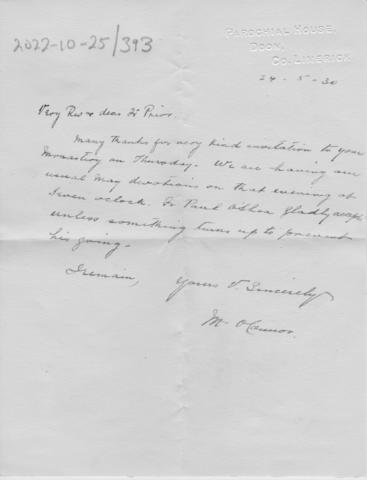 2022-10-25/393
PAROCHIAL HOUSE,
DOON,
CO. LIMERICK
24-5-30
Very Rev & dear Fr Prior,
Many thanks for very kind invitation to your
Monastery on Thursday. We are having our
usual May devotions on that evening at
Seven o'clock. Fr Paul gladly accepts
unless something turns up to prevent
his going.
I remain,
Yours V. Sincerely
M. O'Connor.